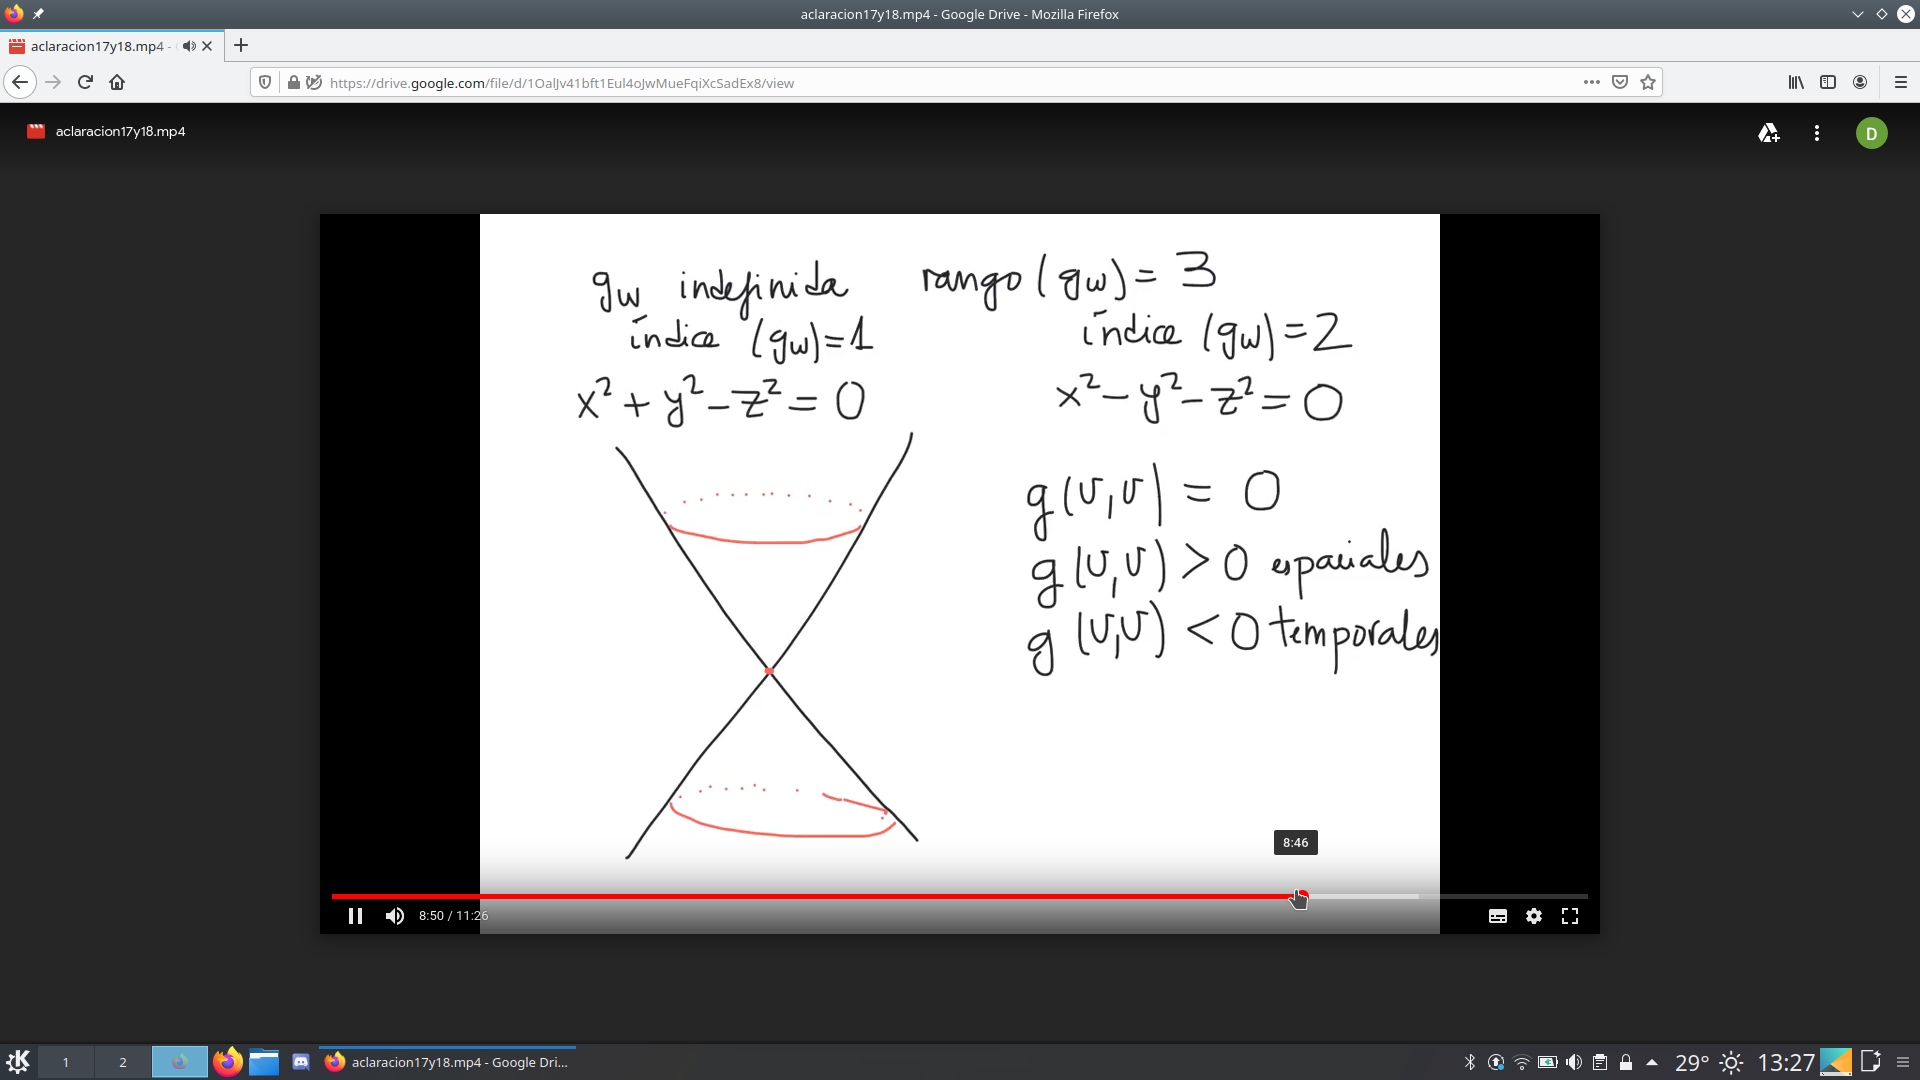 aclaracion17y18.mp4 - Google Drive - Mozilla Firefox
aclaracion17y18.mp4 -
https://drive.google.com/file/d/1OalJv41bft1Eul4oJwMueFqiXcSadEx8/view
aclaracion17y18.mp4
D
gw indefinida rango (gw) = 3
índice (gw)=1 índice (gw)=2
x²+y²-z²=0 x²-y²-z²=0
g(v,v) = 0
g(v,v) > 0 espaciales
g(v,v) < 0 temporales
8:46
8:50 / 11:26
1 2 aclaracion17y18.mp4 - Google Dri... 29° 13:27